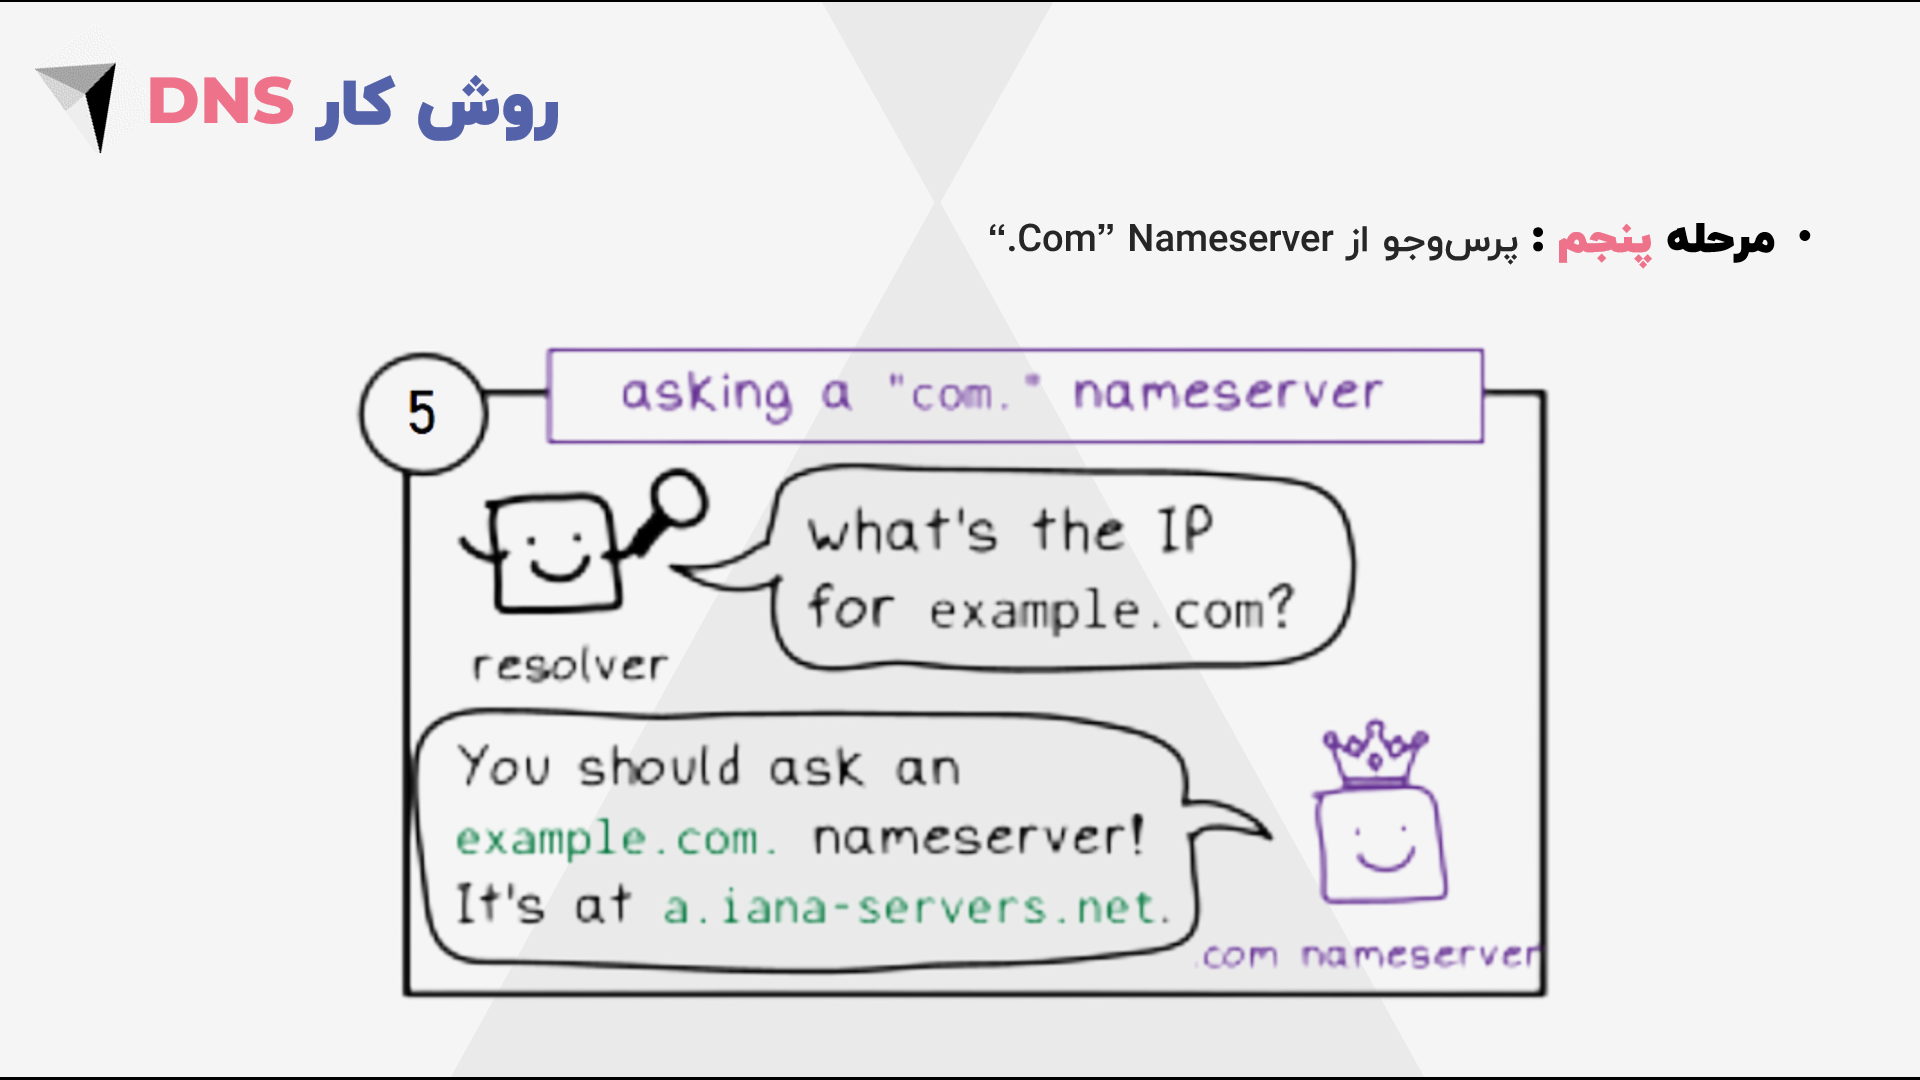 روش کار DNS
• مرحله پنجم : پرس‌وجو از Nameserver “.Com”
5
asking a "com." nameserver
what's the IP
for example.com?
resolver
You should ask an
example.com. nameserver!
It's at a.iana-servers.net.
.com nameserver